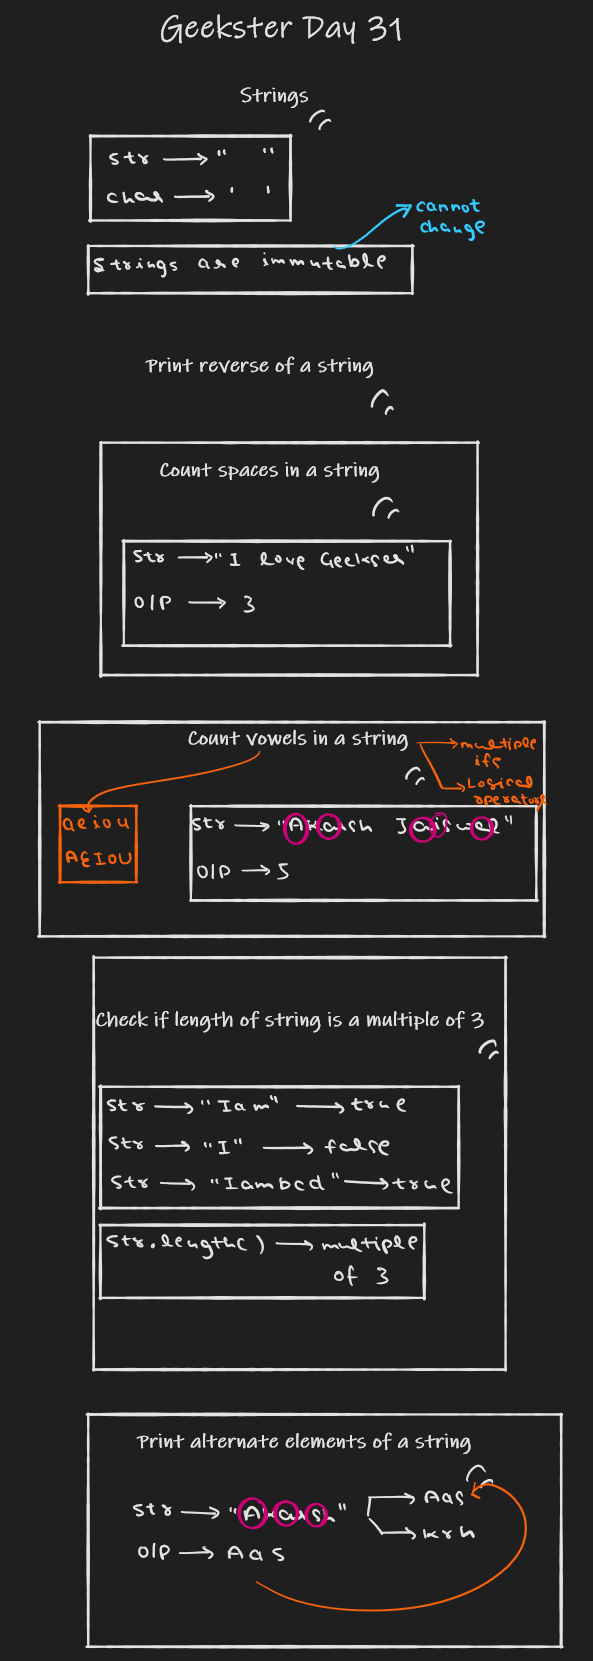 Geekster Day 31
Strings
str → " "
char → ' '
cannot
change
Strings are immutable
Print reverse of a string
Count spaces in a string
str → "I love Geekster"
O/P → 3
Count vowels in a string
multiple
ifs
Logical
operators
aeiou
AEIOU
str → "Akash Jaiswal"
O/P → 5
Check if length of string is a multiple of 3
str → "Iam" → true
str → "I" → false
str → "Iambcd" → true
str.length() → multiple
of 3
Print alternate elements of a string
str → "Akarsh" → Aas
→ krh
O/P → Aas